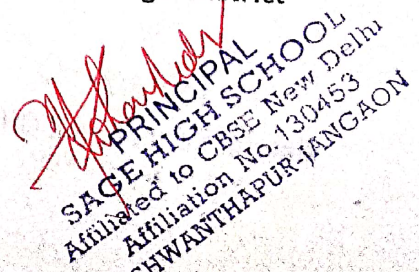 PRINCIPAL
SAGE HIGH SCHOOL
Affiliated to CBSE New Delhi
Affiliation No. 130453
SHWANTHAPUR-JANGAON